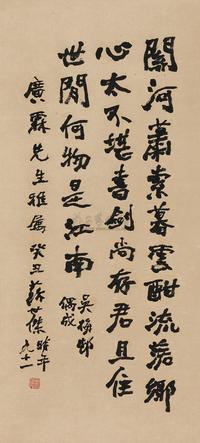 關河蕭索暮雲酣流落鄉
心太不堪書劍尚存君且住
世間何物是江南
吳梅邨
偶成
廣霖先生雅屬癸丑蘇世傑時年
九十一